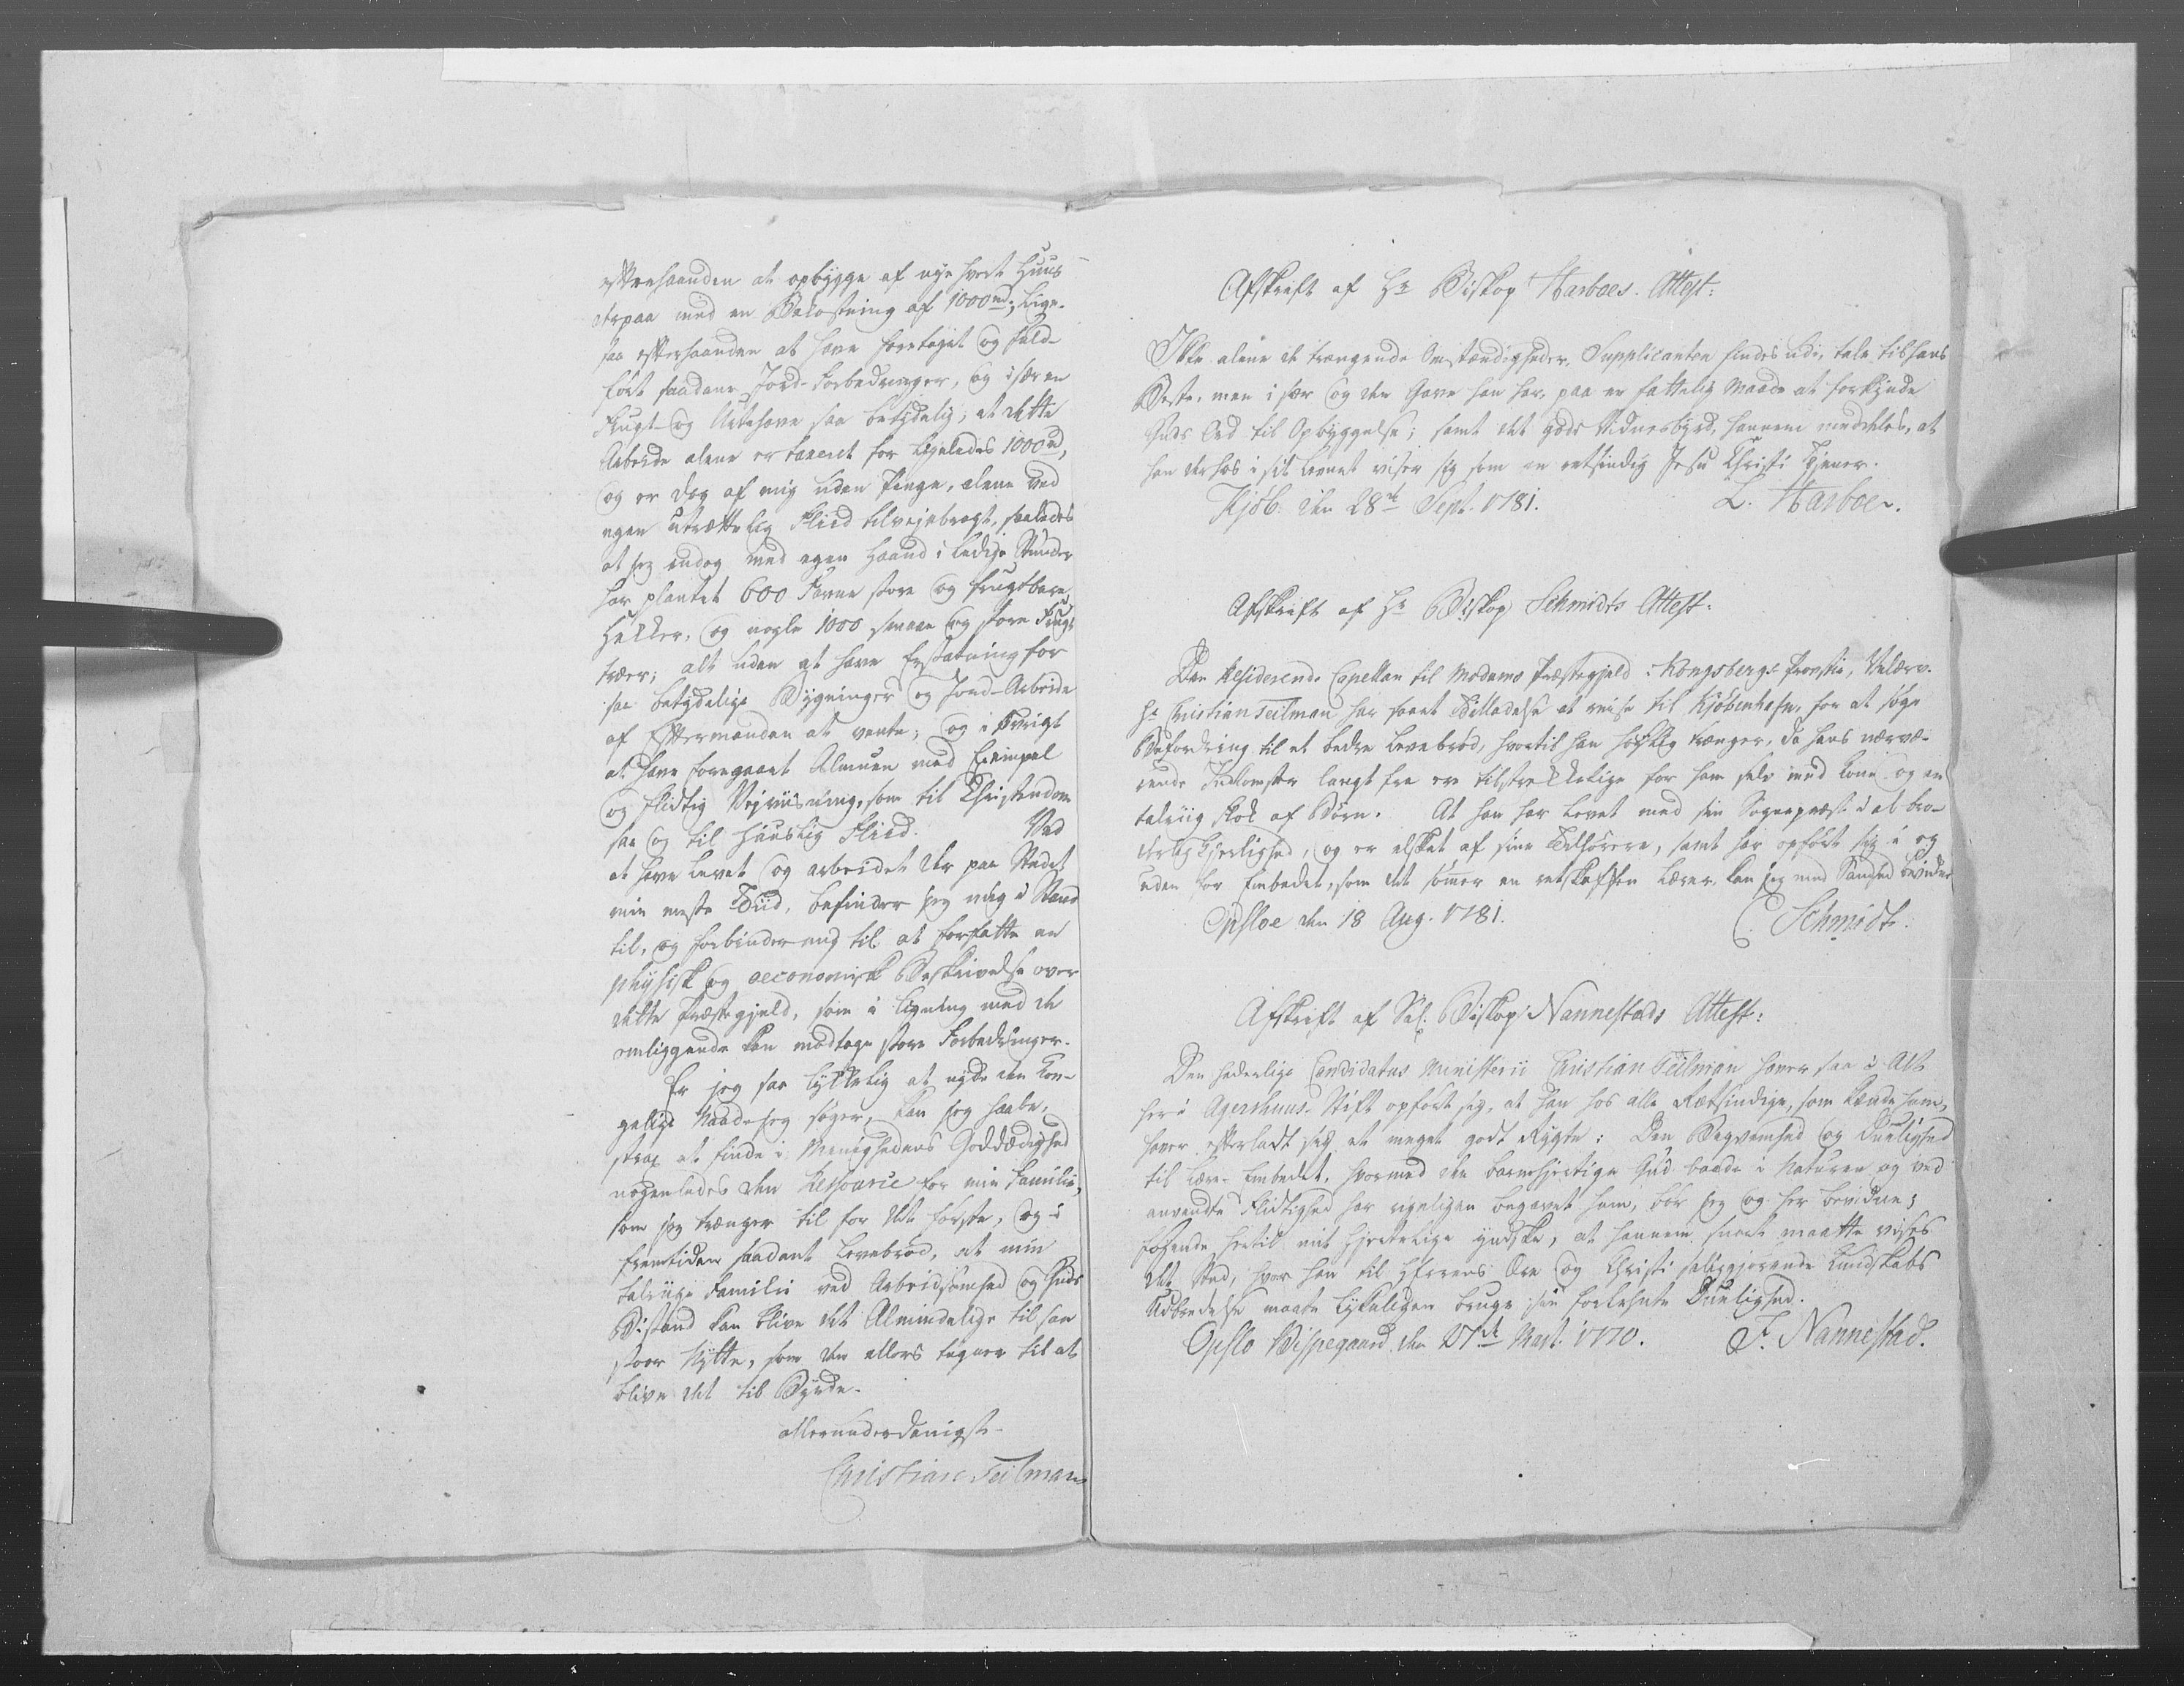 efterhaanden at opbygge af nye hvert Huus
derpaa med en Bekostning af 1000 rd; lige-
saa efterhaanden at have foretaget og fuld-
ført saadanne Jord-Forbedringer, og især en
Frugt- og Urtehave saa betydelig, at dette
Arbeide alene er taxeret for ligeledes 1000 rd,
og er dog af mig uden Penge, alene ved
egen utrættelig Fliid tilvejebragt, saaledes
at jeg endog med egen Haand i ledige Stunder
har plantet 600 Favne store og frugtbare
Hekker, og nogle 1000 smaae og store Frugt
træer; alt uden at have Erstatning for
saa betydelige Bygninger og Jord-Arbeide
af Eftermanden at vente; og i øvrigt
at have foregaaet Almuen med Exempel
og flidtig Veyviisning, som til Christendom
saa og til huuslig Fliid. Ved
at have levet og arbeidet her paa Stedet
min meste Tiid, befinder jeg mig i Stand
til, og forbinder mig til at forfatte en
physisk og oeconomisk Beskrivelse over
dette Præstegjeld, som i Ligning med de
omliggende kan modtage store Forbedringer.
Er jeg saa lykkelig at nyde den Kon-
gelige Naade jeg søger, kan jeg haabe,
strax at finde i Menighedens Goddædighed
nogenledes den Ressource for min Familie,
som jeg trænger til for det første, og i
Fremtiden saadant Levebrød, at min
talriige Familie ved Arbeidsomhed og Guds
Bistand kan blive det Almindelige til saa
stoor Nytte, som den ellers tegner til at
blive det til Byrde.
allerunderdanigst
Christian Teilman
Afskrift af Hr Biskop Harboes Attest:
Ikke alene de trængende Omstændigheder, Supplicanten findes udi, tale til hans
Beste, men i sær og den Gave han har, paa en fattelig Maade at forkynde
Guds Ord til Opbyggelse; samt det gode Vidnesbyrd, hannem meddeles, at
han derhos i sit Levnet viser sig som en retsindig Jesu Christi Tjener.
Kjøb. den 28de Sept. 1781. L. Harboe.
Afskrift af Hr Biskop Schmidts Attest:
Den Residerende Capellan til Modums Præstegjeld i Kongsbergs Provstie, Velærv.
Hr Christian Teilman har faaet Tilladelse at reise til Kjøbenhafn, for at søge
Befordring til et bedre Levebrød, hvortil han høylig trænger, da hans nærvæ-
rende Indkomster langt fra ere tilstrekkelige for ham selv med Kone og en
talriig Flok af Børn. At han har levet med sin Sognepræst i al bro-
derlig Kjerlighed, og er elsket af sine Tilhørere, samt har opført sig i og
uden for Embedet, som det sømer en retskaffen Lærer, kan jeg med Sandhed bevidne
Opsloe den 18 Aug. 1781. C. Schmidt.
Afskrift af Sal. Biskop Nannestads Attest:
Den hederlige Candidatus Ministerii Christian Teilman haver saa i Alt
her i Agershuus-Stift opført sig, at han hos alle Rætsindige, som kiende ham,
haver efterladt sig et meget godt Rygte: Den Beqvemhed og Duelighed
til Lære-Embedet, hvormed den barmhjertige Gud baade i Naturen og ved
anvendte Flidtighed har rigeligen begavet ham, bør jeg og her bevidne;
føyende hertil mit hjertelige Yndske, at hannem snart maatte vises
det Sted, hvor han til HErrens Ære og Christi saliggiørende Kundskabs
Udbredelse maate lykkeligen bruge sin forlehnte Duelighed.
Opslo Bispegaard, den 27de Mart. 1770. F. Nannestad.